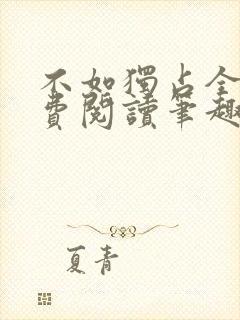 不如獨占全
費閱讀筆趣
夏青